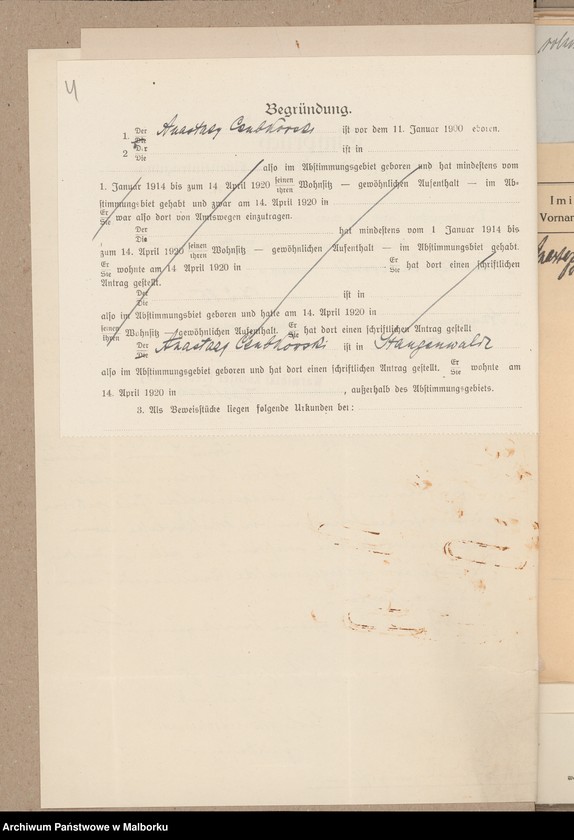 4
Begründung.
1. Der Die Anastasy Czubkowski ist vor dem 11. Januar 1900 eboren.
2 Der Die ist in
also im Abstimmungsgebiet geboren und hat mindestens vom
1. Januar 1914 bis zum 14 April 1920 seinen ihren Wohnsitz — gewöhnlichen Aufenthalt — im Ab-
stimmungsbiet gehabt und zwar am 14. April 1920 in
Er Sie war also dort von Amtswegen einzutragen.
Der Die hat mindestens vom 1 Januar 1914 bis
zum 14. April 1920 seinen ihren Wohnsitz — gewöhnlichen Aufenthalt — im Abstimmungsgebiet gehabt.
Er Sie wohnte am 14 April 1920 in Er Sie hat dort einen schriftlichen
Antrag gestellt.
Der Die ist in
also im Abstimmungsbiet geboren und hatte am 14. April 1920 in
seinen ihren Wohnsitz — gewöhnlichen Aufenthalt. Er Sie hat dort einen schriftlichen Antrag gestellt
Der Die Anastasy Czubkowski ist in Stangenwalde
also im Abstimmungsgebiet geboren und hat dort einen schriftlichen Antrag gestellt. Er Sie wohnte am
14. April 1920 in , außerhalb des Abstimmungsgebiets.
3. Als Beweisstücke liegen folgende Urkunden bei:
Imi
Vornar
Archiwum Państwowe w Malborku